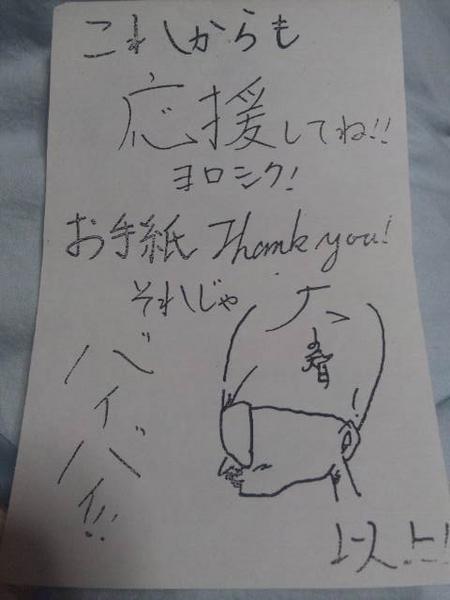 これからも
応援してね!!
ヨロシク!
お手紙 Thank you!
それじゃ
バイバイ!!
以上!